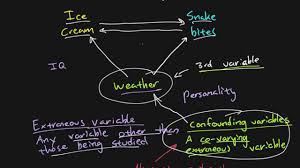 Ice
Cream
Snake
bites
IQ
weather
3rd variable
personality
Extraneous Variable
Any variable other than
those being studied
confounding variables
A co-varying
extraneous variable